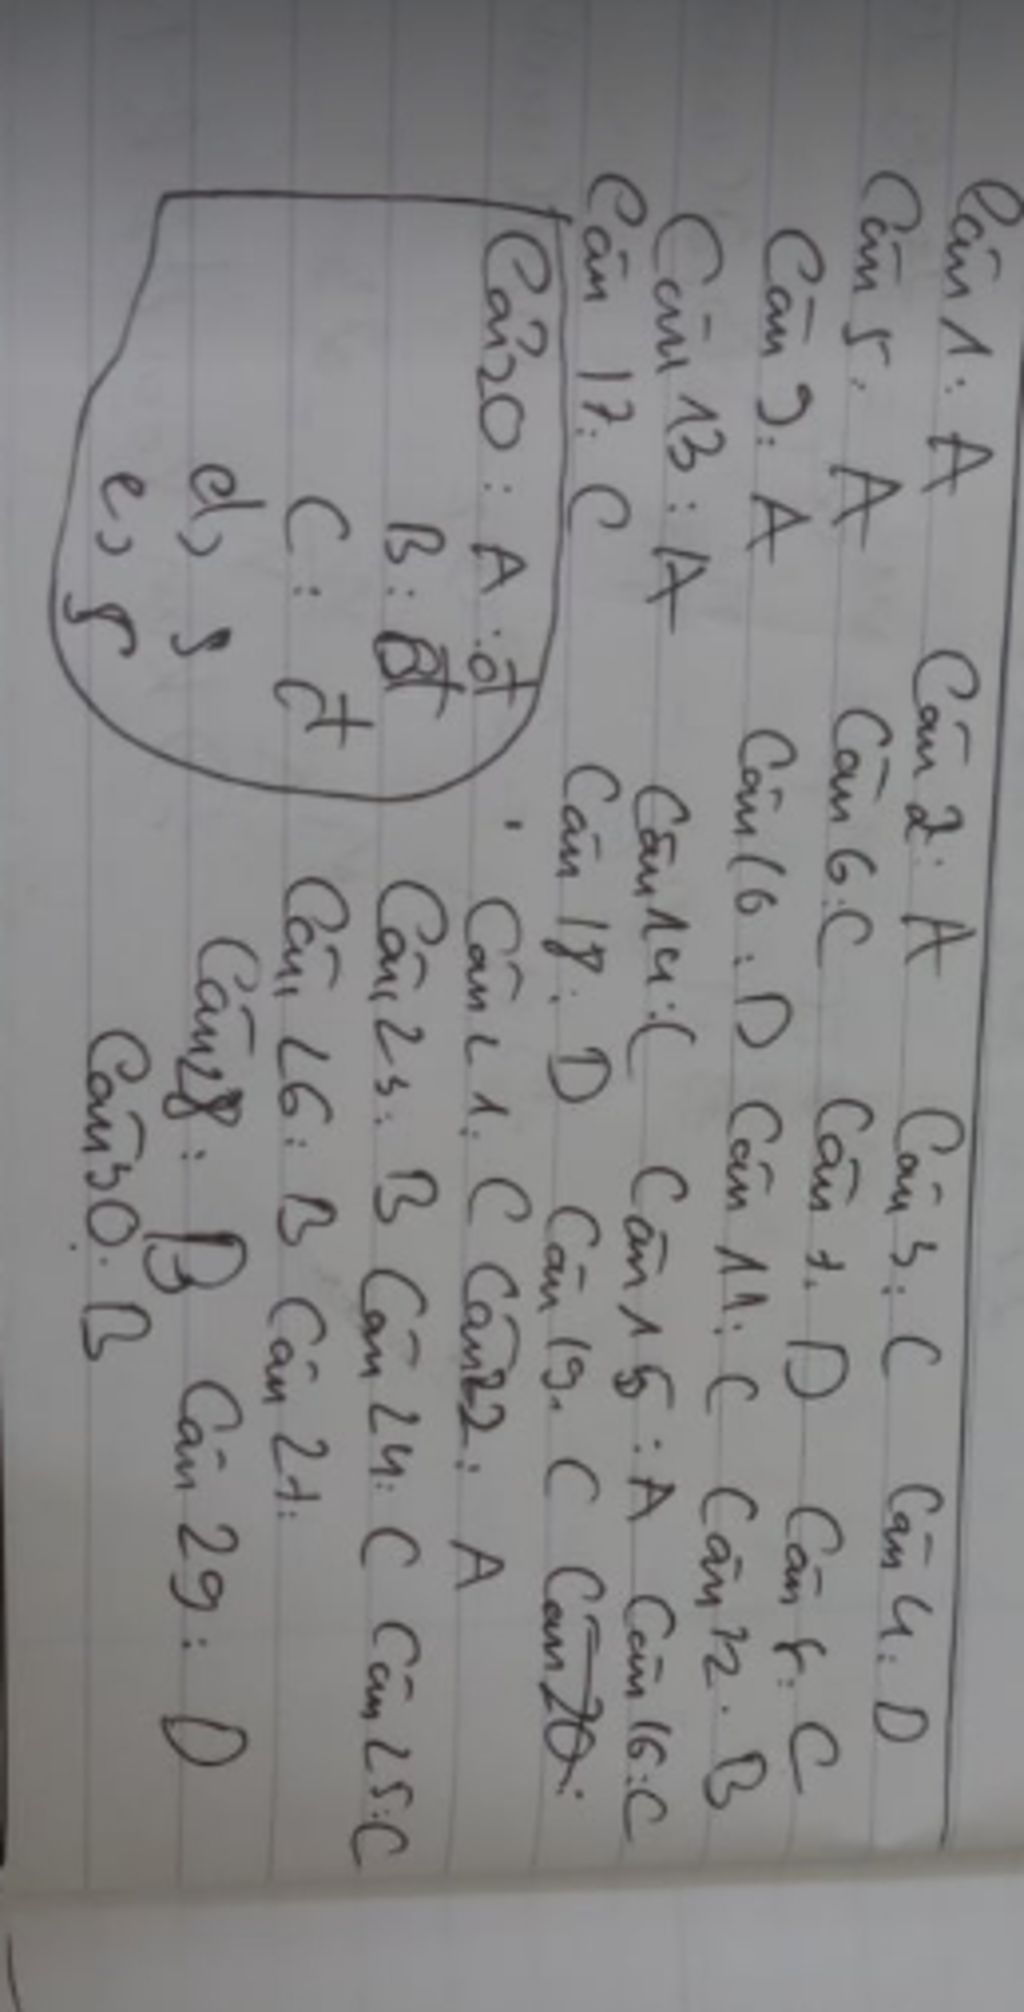 Câu 1: A Câu 2: A Câu 3: C Câu 4: D
Câu 5: A Câu 6: C Câu 7: D Câu 8: C
Câu 9: A Câu 10: D Câu 11: C Câu 12: B
Câu 13: A Câu 14: C Câu 15: A Câu 16: C
Câu 17: C Câu 18: D Câu 19: C Câu 20:
Câu 20: A: đ
B: đ
C: đ
d) S
e) S
Câu 21: C Câu 22: A
Câu 23: B Câu 24: C Câu 25: C
Câu 26: B Câu 27:
Câu 28: B Câu 29: D
Câu 30: B